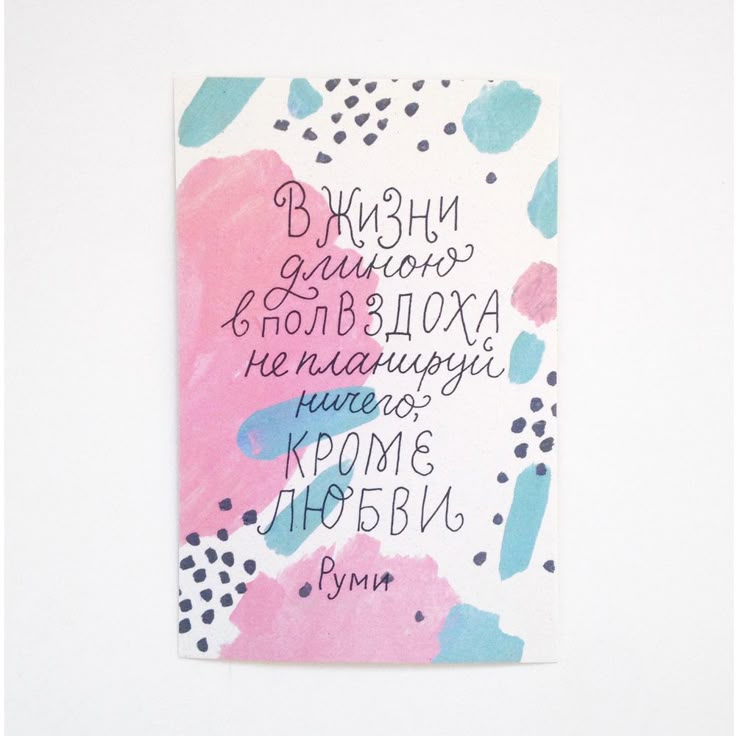 В ЖИЗНИ
длиною
в полВЗДОХА
не планируй
ничего,
КРОМЕ
ЛЮБВИ
Руми